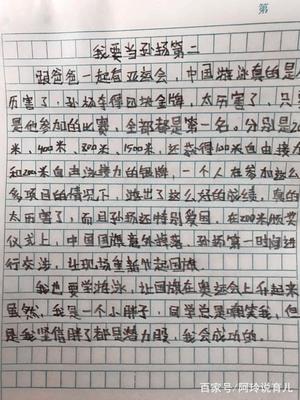 第
我要当孙杨第二
跟爸爸一起看亚运会，中国游泳真的是
厉害了，孙杨夺得四块金牌，太厉害了，只要
是他参加的比赛，全部都是第一名。分别是200
米、400米、800米、1500米，还获得100米自由接力
和200米自由泳接力的银牌，一个人在参加这么
多项目的情况下，游出了这么好的成绩，真的
太厉害了，而且孙杨还特别爱国，在200米颁奖
仪式上，中国国旗意外掉落，孙杨第一时间进
行交涉，让现场重新升起国旗.
我也要学游泳，让国旗在奥运会上升起来
虽然，我是一个小胖子，同学总是嘲笑我，但
是我坚信胖子都是潜力股，我会成功的.
百家号/阿玲说育儿